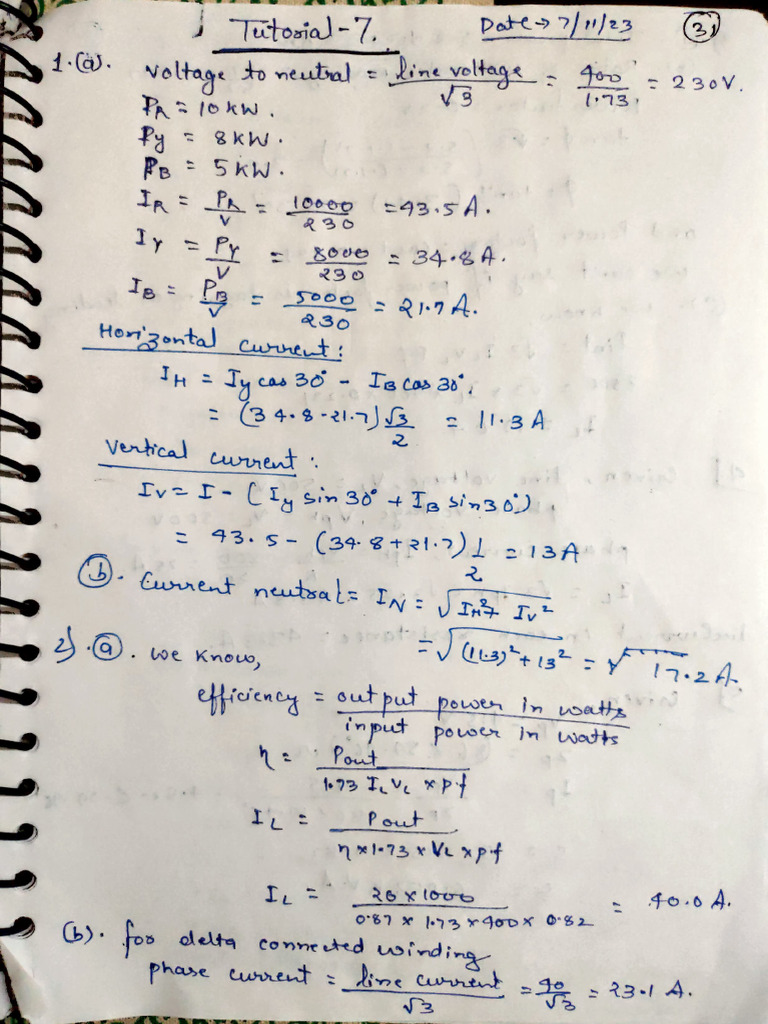 Tutorial-7. Date → 7/11/23 (3)
1.(a). voltage to neutral = line voltage / √3 = 400 / 1.73 = 230V.
PR = 10 kW.
Py = 8 KW.
PB = 5 KW.
IR = PR / V = 10000 / 230 = 43.5 A.
IY = PY / V = 8000 / 230 = 34.8 A.
IB = PB / V = 5000 / 230 = 21.7 A.
Horizontal current:
IH = Iy cos 30° - IB cos 30°.
= (34.8-21.7) √3 / 2 = 11.3 A
Vertical current:
IV = I - (Iy sin 30° + IB sin 30°)
= 43.5 - (34.8+21.7) 1 / 2 = 13 A
(b). Current neutral = IN = √ IH² + IV²
= √ (11.3)² + 13² = √ 17.2 A.
2). (a). we know,
efficiency = output power in watts / input power in watts
η = Pout / 1.73 IL VL × p.f
IL = Pout / η × 1.73 × VL × p.f
IL = 20 × 1000 / 0.87 × 1.73 × 400 × 0.82 = 40.0 A.
(b). for delta connected winding
phase current = line current / √3 = 40 / √3 = 23.1 A.